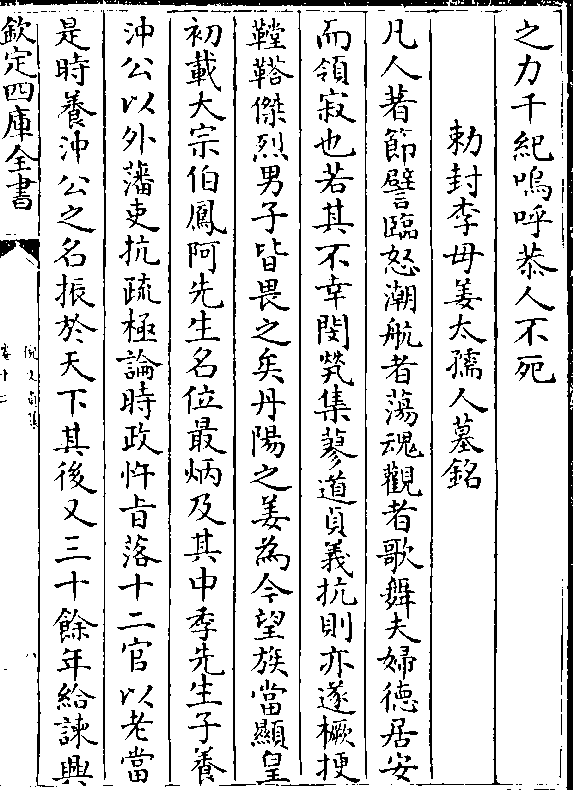 之力千紀嗚呼恭人不死
勅封李母姜太孺人墓銘
凡人著節譬臨怒潮航者蕩魂觀者歌舞夫婦德居安
而領寂也若其不幸閔煢集蓼道貞義抗則亦遂橛挭
鞺鞳傑烈男子皆畏之矣丹陽之姜為今望族當顯皇
初載大宗伯鳳阿先生名位最炳及其中季先生子養
沖公以外藩吏抗疏極論時政忤㫖落十二官以老當
是時養沖公之名振於天下其後又三十餘年給諫興
欽定四庫全書